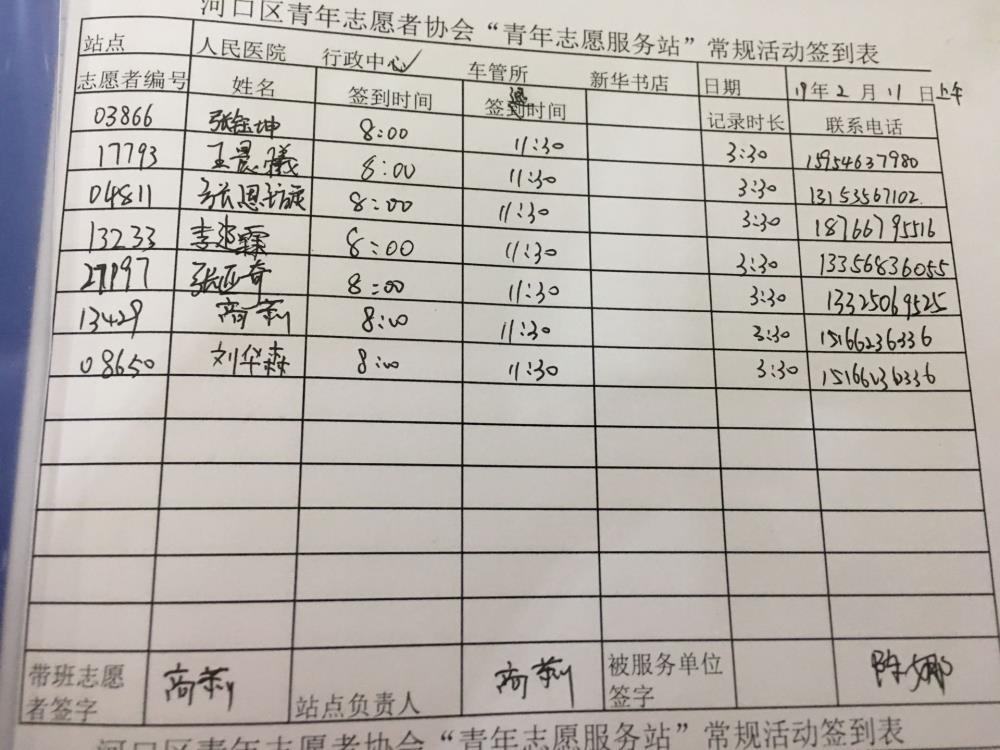 河口区青年志愿者协会“青年志愿服务站”常规活动签到表
站点 人民医院 行政中心✓ 车管所 新华书店 日期 19年2月11日上午
志愿者编号 姓名 签到时间 签退时间 记录时长 联系电话
03866 张 坤 8:00 11:30 3:30 15954637980
17793 王晨曦 8:00 11:30 3:30 13153567102
04811 张恩 8:00 11:30 3:30 18766795516
13233 李 霖 8:00 11:30 3:30 13356836055
27197 张亚奇 8:00 11:30 3:30 13325069525
13429 商莉 8:00 11:30 3:30 15166236336
08650 刘华森 8:00 11:30 3:30 15166236336
带班志愿者签字 商莉 站点负责人 商莉 被服务单位签字 陈 娜
河口区青年志愿者协会“青年志愿服务站”常规活动签到表